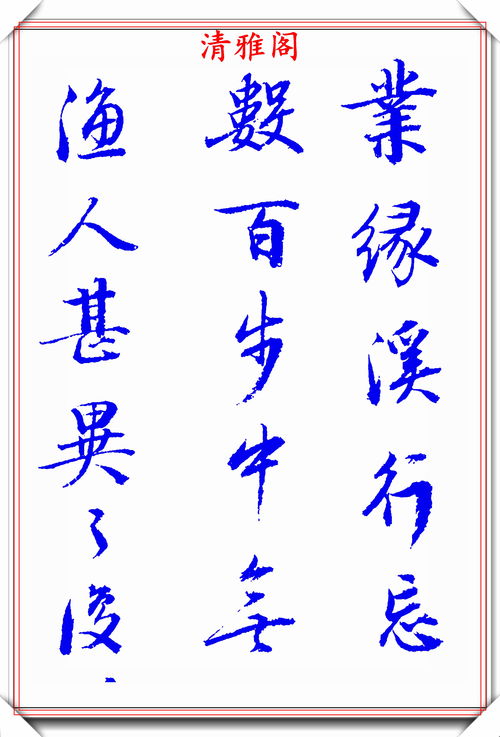 清雅阁
業緣溪行忘
數百步中無
漁人甚異之復